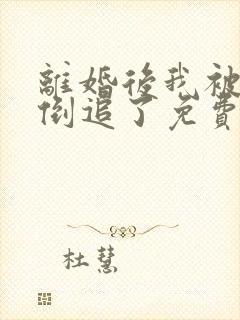 離婚後我被
倒追了免費
杜慧